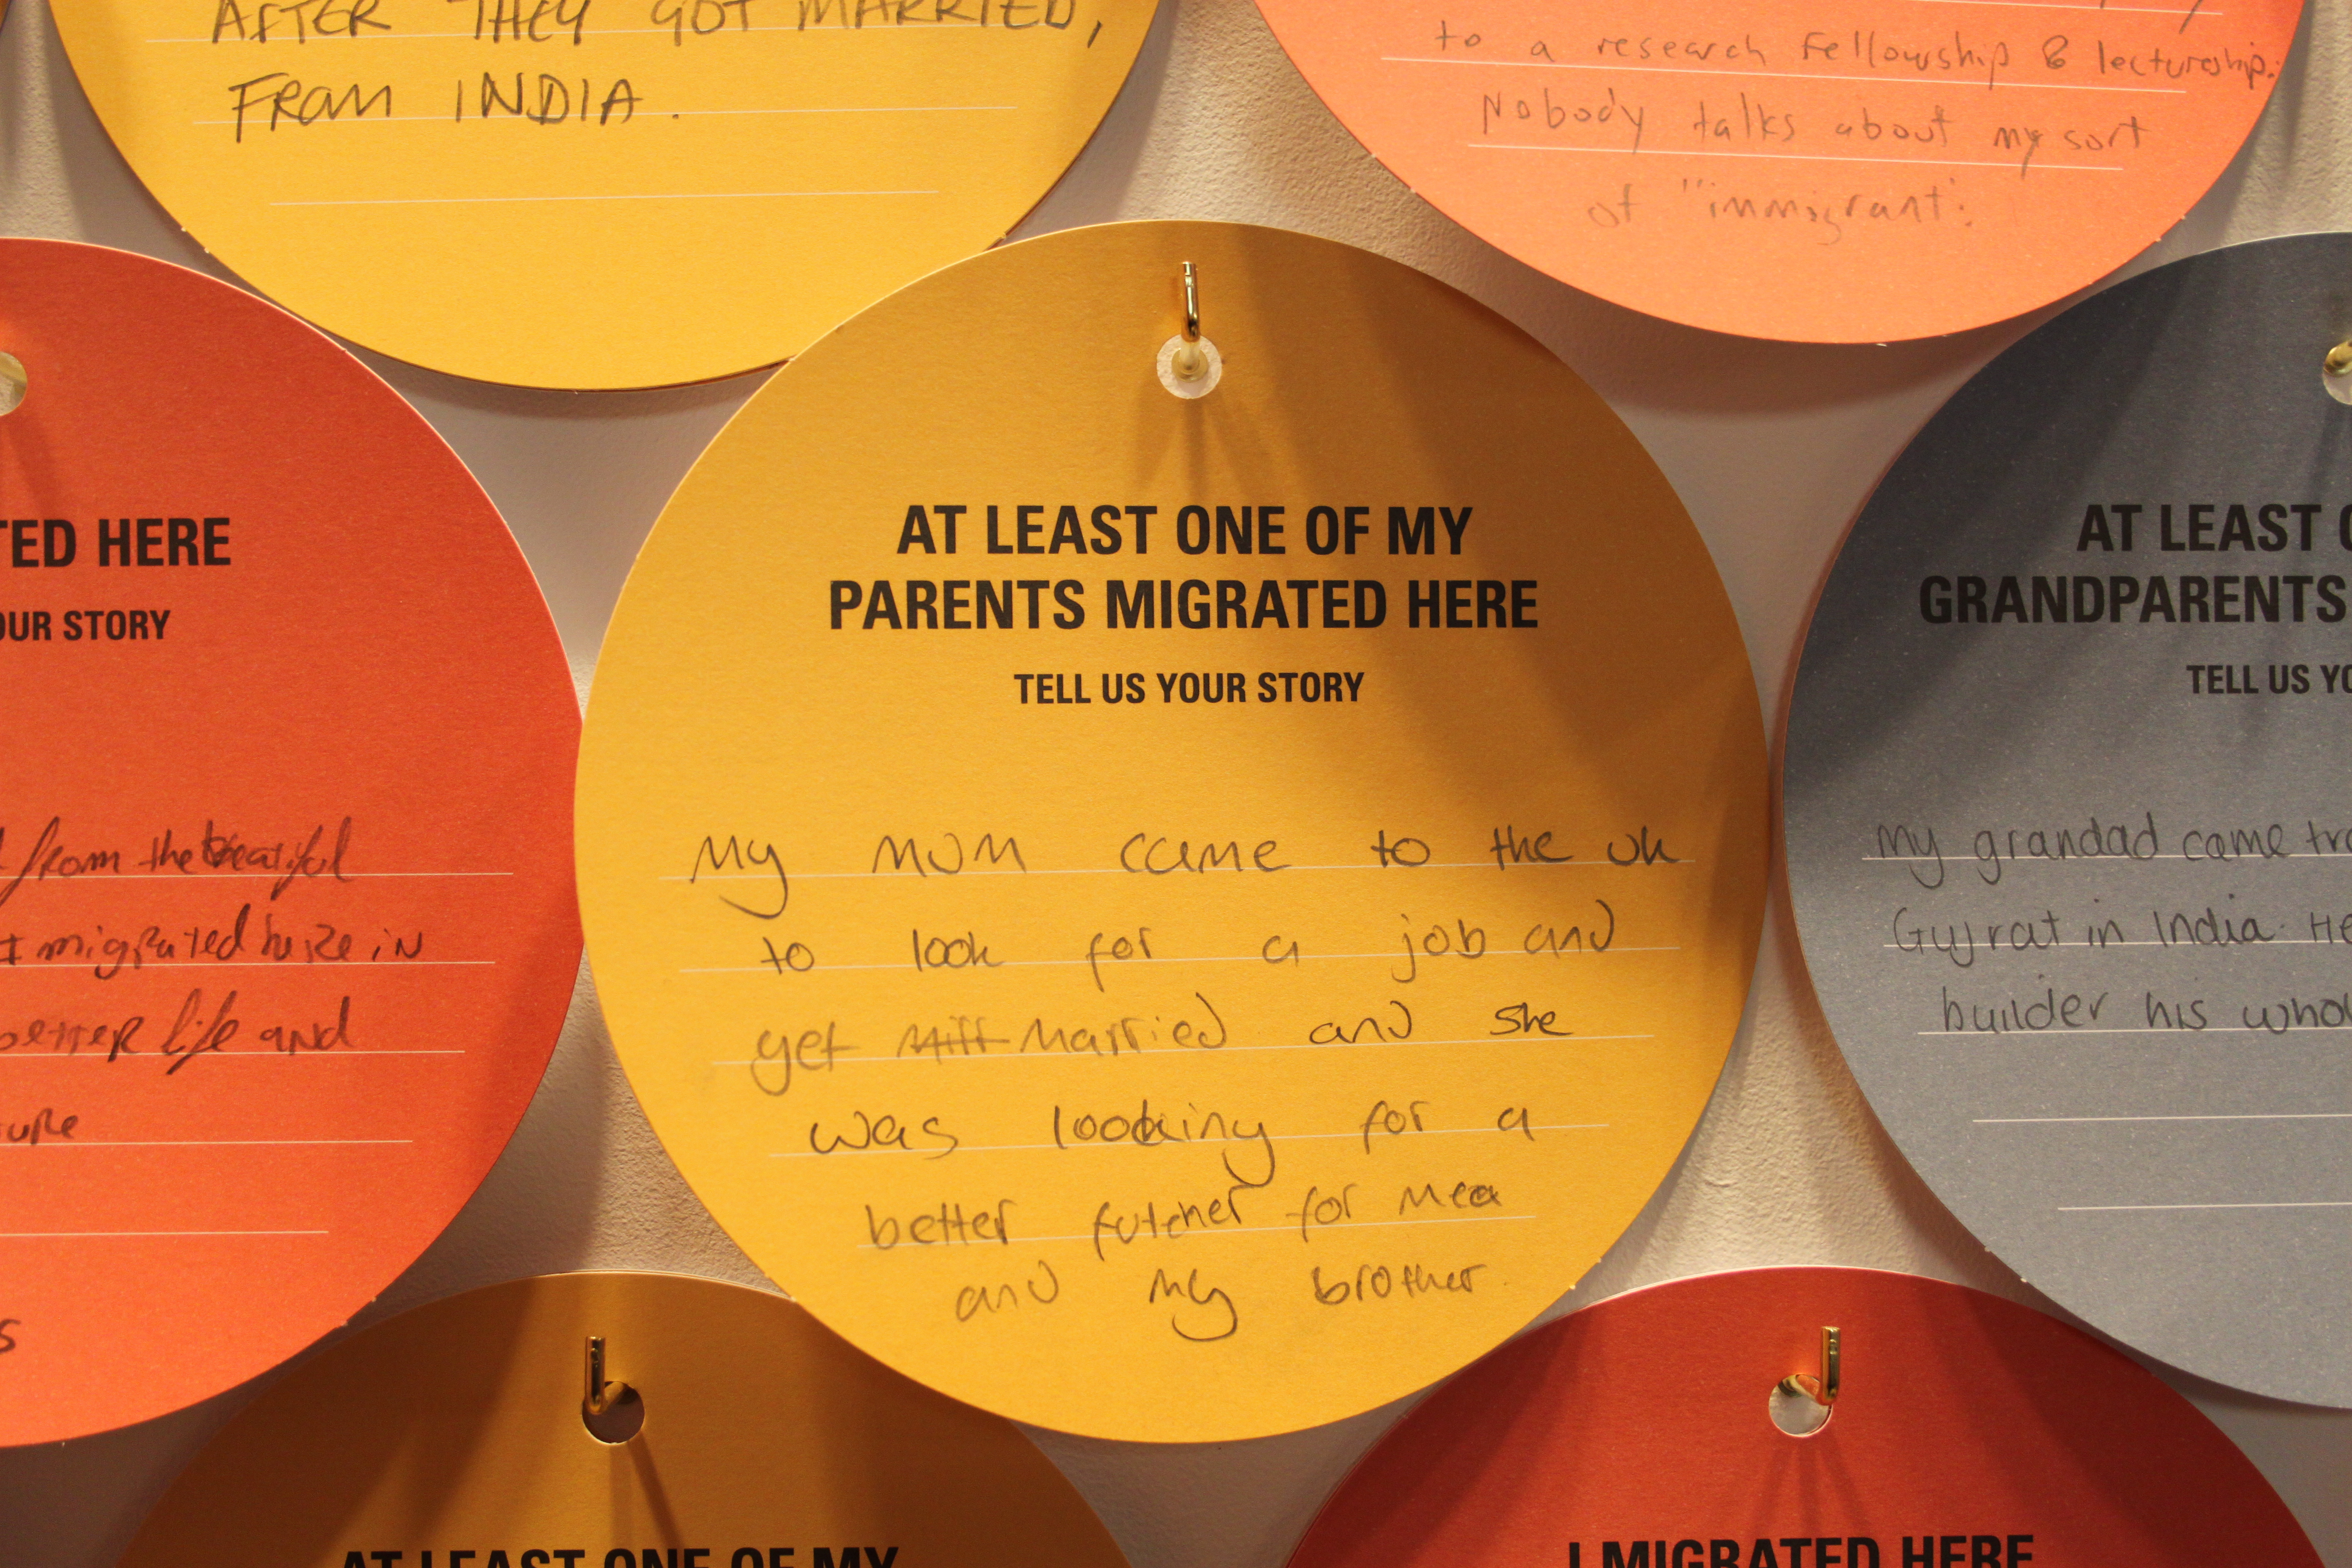 AFTER THEY GOT MARRIED,
FROM INDIA.
to a research Fellowship & lectureship.
Nobody talks about my sort
of "immigrant".
TED HERE
OUR STORY
from the
I migrated here in
better life and
ure
s
AT LEAST ONE OF MY
PARENTS MIGRATED HERE
TELL US YOUR STORY
My mum came to the uk
to look for a job and
get married and she
was looking for a
better futcher for mea
and my brother
AT LEAST O
GRANDPARENTS
TELL US YO
My grandad came fro
Gujrat in India. He
builder his whol
AT LEAST ONE OF MY
I MIGRATED HERE